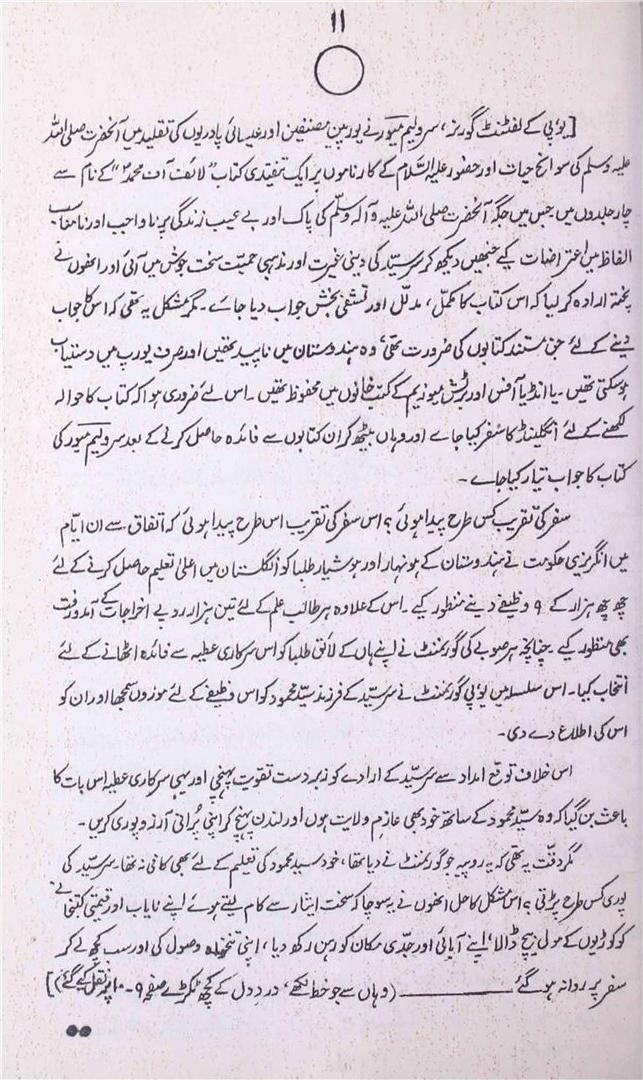 ۱۱
[یوپی کے لفٹنٹ گورنر، سر ولیم میور نے یورپین مصنفین اور عیسائی پادریوں کی تقلید میں آنحضرت صلی اللہ
علیہ وسلم کی سوانح حیات اور حضور علیہ السّلام کے کارناموں پر ایک تنقیدی کتاب "لائف آف محمدؐ" کے نام سے
چار جلدوں میں جس میں جگہ جگہ آنحضرت صلی اللہ علیہ وآلہ وسلّم کی پاک اور بے عیب زندگی پر ناواجب اور نامناسب
الفاظ میں اعتراضات کیے جنھیں دیکھ کر سرسیّد کی دینی غیرت اور مذہبی حمیّت سخت جوش میں آئی اور انھوں نے
پختہ ارادہ کر لیا کہ اس کتاب کا مکمّل، مدلّل اور تشفّی بخش جواب دیا جائے۔ مگر مشکل یہ تھی کہ اس کا جواب
دینے کے لئے جن مستند کتابوں کی ضرورت تھی، وہ ہندوستان میں ناپید تھیں اور صرف یورپ میں دستیاب
ہوسکتی تھیں۔ یا انڈیا آفس اور برٹش میوزیم کے کتب خانوں میں محفوظ تھیں۔ اس لئے ضروری ہوا کہ کتاب کا حوالہ
لکھنے کے لئے انگلینڈ کا سفر کیا جائے اور وہاں بیٹھ کر ان کتابوں سے فائدہ حاصل کرنے کے بعد سر ولیم میور کی
کتاب کا جواب تیار کیا جائے۔
سفر کی تقریب کس طرح پیدا ہوئی؟ اس سفر کی تقریب اس طرح پیدا ہوئی کہ اتفاق سے ان ایّام
میں انگریزی حکومت نے ہندوستان کے ہونہار اور ہوشیار طلبا کو انگلستان میں اعلیٰ تعلیم حاصل کرنے کے لئے
چھ چھ ہزار کے ۹ وظیفے دینے منظور کیے۔ اس کے علاوہ ہر طالب علم کے لئے تین ہزار روپے اخراجات کے آمدورفت
بھی منظور کیے۔ چنانچہ ہر صوبے کی گورنمنٹ نے اپنے ہاں کے لائق طلبا کو اس سرکاری عطیہ سے فائدہ اٹھانے کے لئے
انتخاب کیا۔ اس سلسلہ میں یوپی گورنمنٹ نے سرسیّد کے فرزند سیّد محمود کو اس وظیفے کے لئے موزوں سمجھا اور ان کو
اس کی اطلاع دے دی۔
اس خلاف توقع امداد سے سرسیّد کے ارادے کو زبردست تقویت پہنچی اور یہی سرکاری عطیہ اس بات کا
باعث بن گیا کہ وہ سیّد محمود کے ساتھ خود بھی عازم ولایت ہوں اور لندن پہنچ کر اپنی پُرانی آرزو پوری کریں۔
مگر دقّت یہ تھی کہ یہ روپیہ جو گورنمنٹ نے دیا تھا، خود سید محمود کی تعلیم کے لئے بھی کافی نہ تھا۔ سرسیّد کی
پوری کس طرح پڑتی؟ اس مشکل کا حل انھوں نے یہ سوچا کہ سخت ایثار سے کام لیتے ہوئے اپنے نایاب اور قیمتی کتبخانے
کو کوڑیوں کے مول بیچ ڈالا، اپنے آبائی اور جدّی مکان کو رہن رکھ دیا، اپنی تنخواہ وصول کی اور سب کچھ لے کر
سفر پر روانہ ہو گئے ــــــــ (وہاں سے جو خط لکھے، دردِ دل کے کچھ ٹکڑے صفحہ ۹-۱۰ پر نقل کیے گئے)]